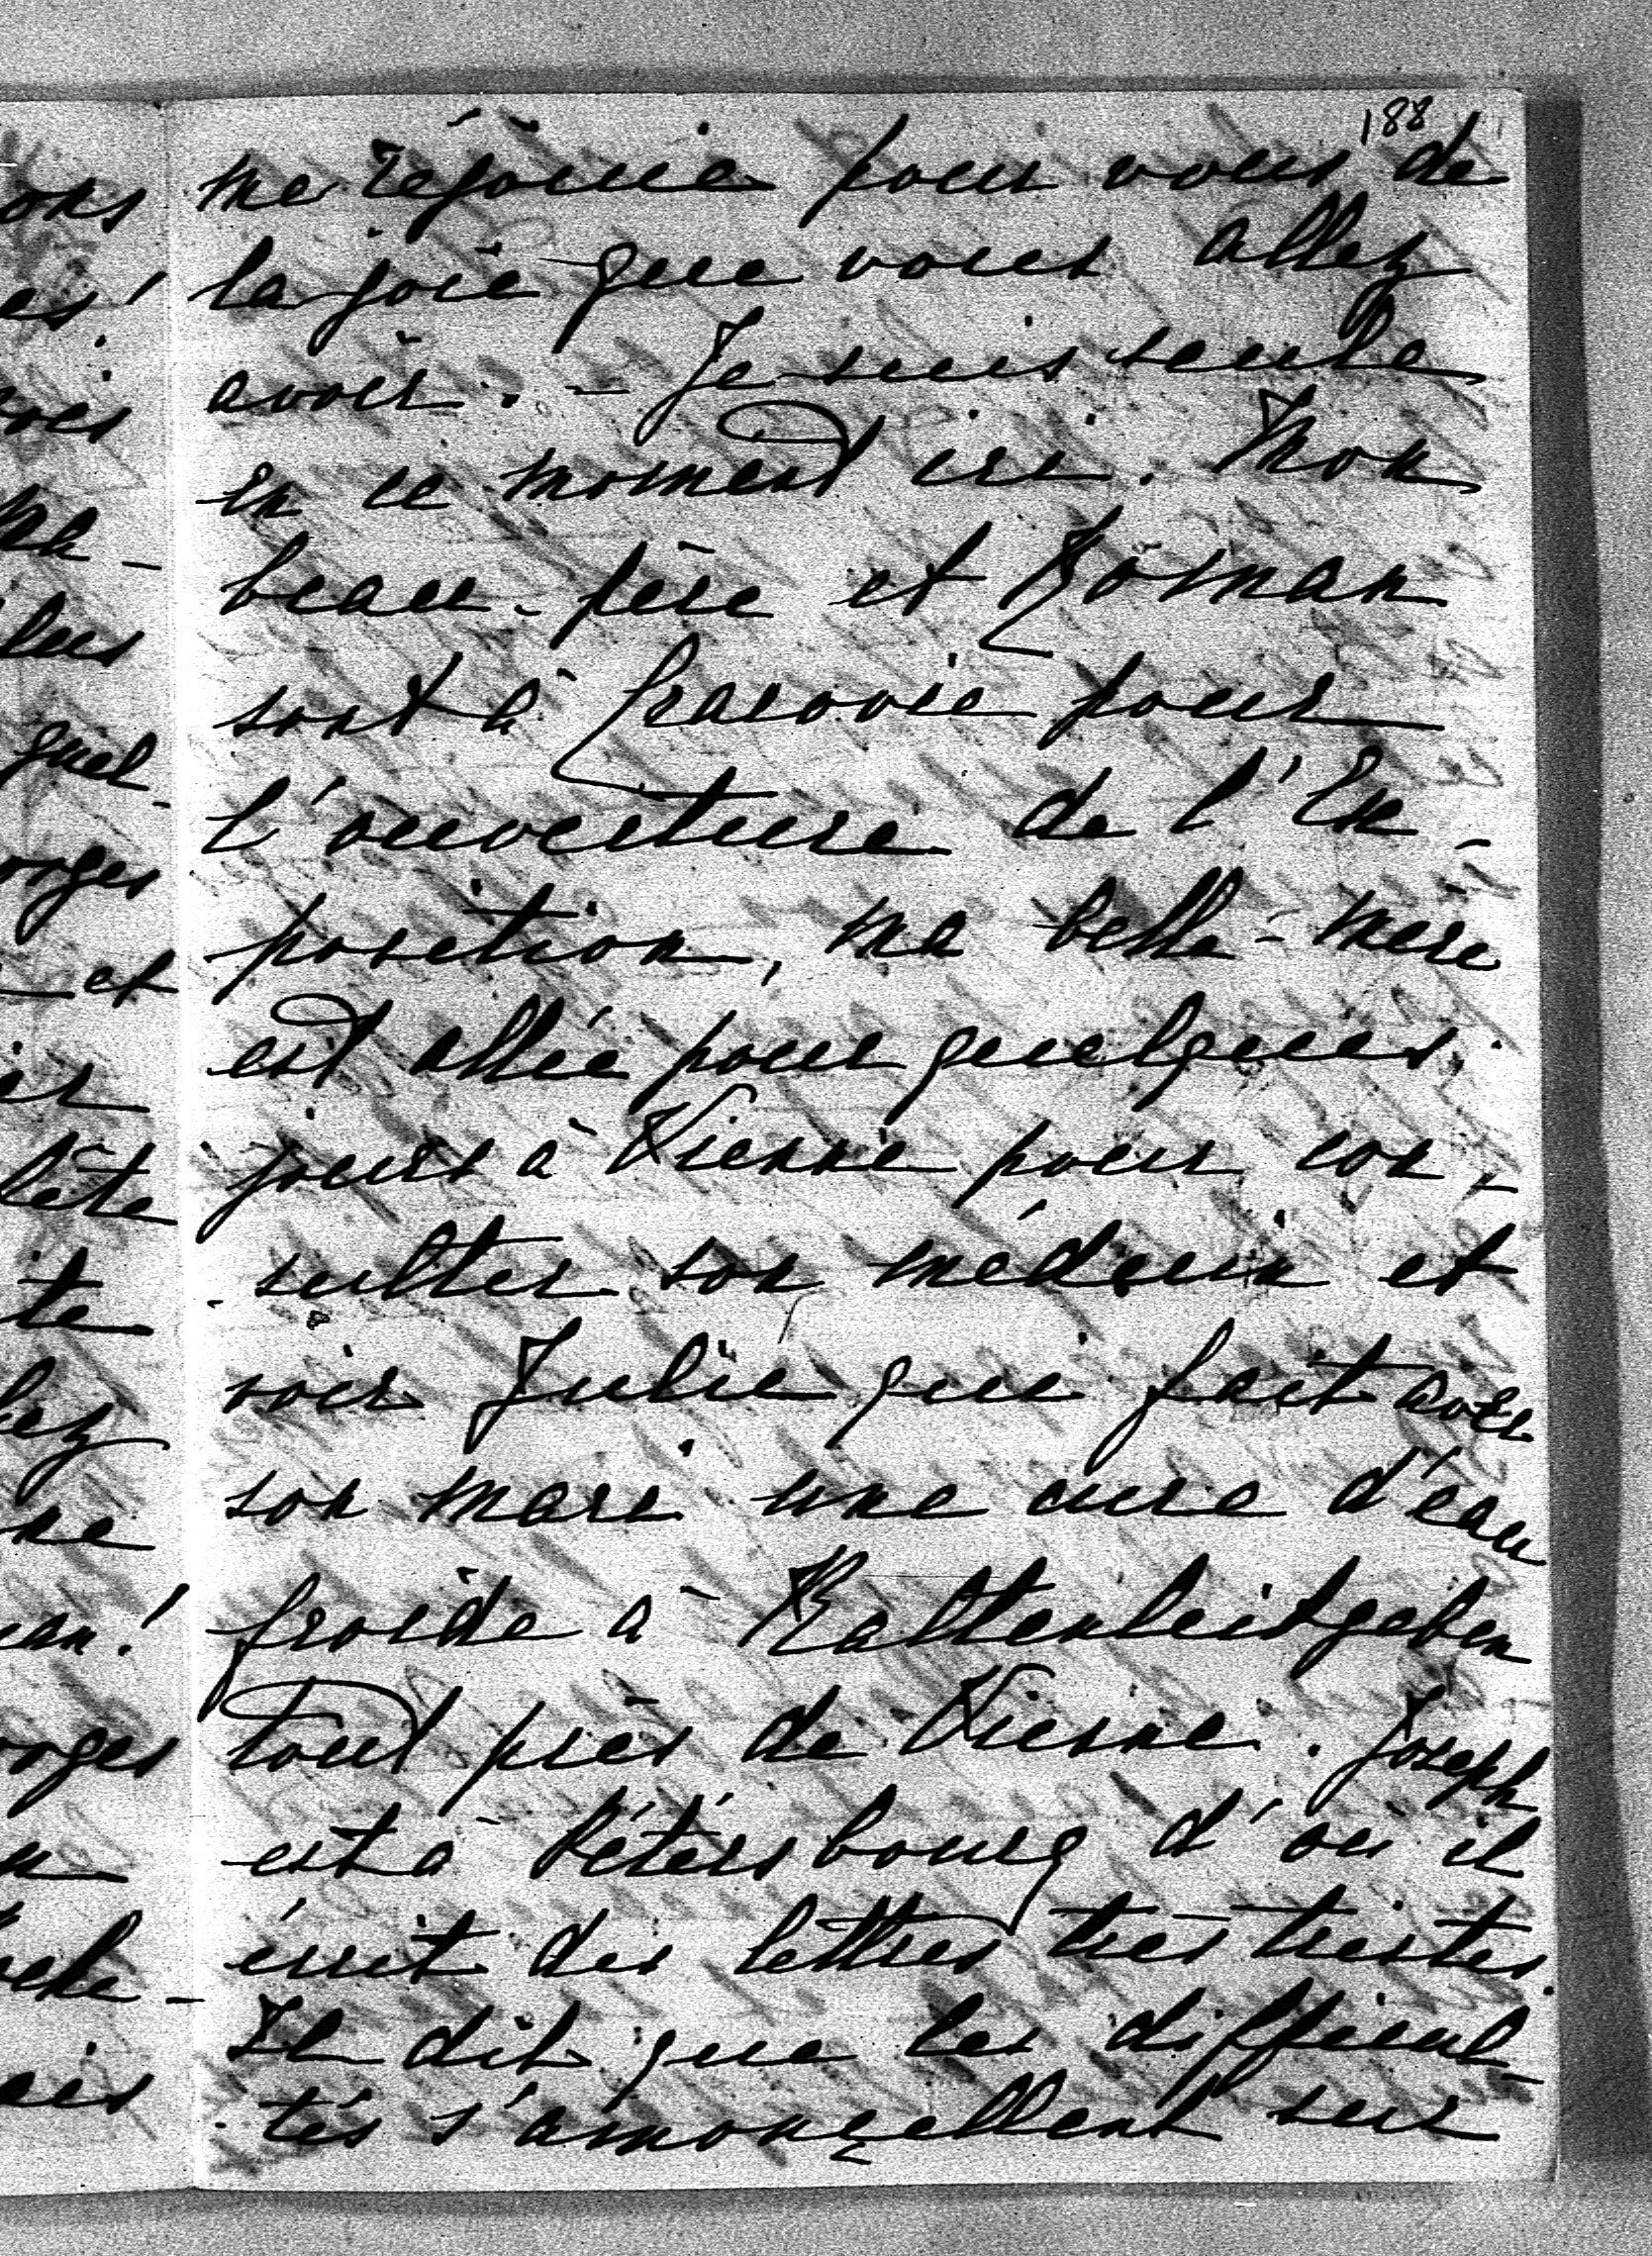 188
me réjouie pour vous de
la joie que vous allez
avoir. – Je suis seule
en ce moment ici. Mon
beau-père et Roman
sont à Cracovie pour
l'ouverture de l'Ex-
position, ma belle-mère
est allée pour quelques
jours à Vienne pour con-
sulter son médecin et
voir Julie qui fait avec
son mari une cure d'eau
froide à Kaltenleitgeben
tout près de Vienne. Joseph
est à Pétersbourg d'où il
écrit des lettres très tristes.
Il dit que les difficul-
tés s'amonçellent sur